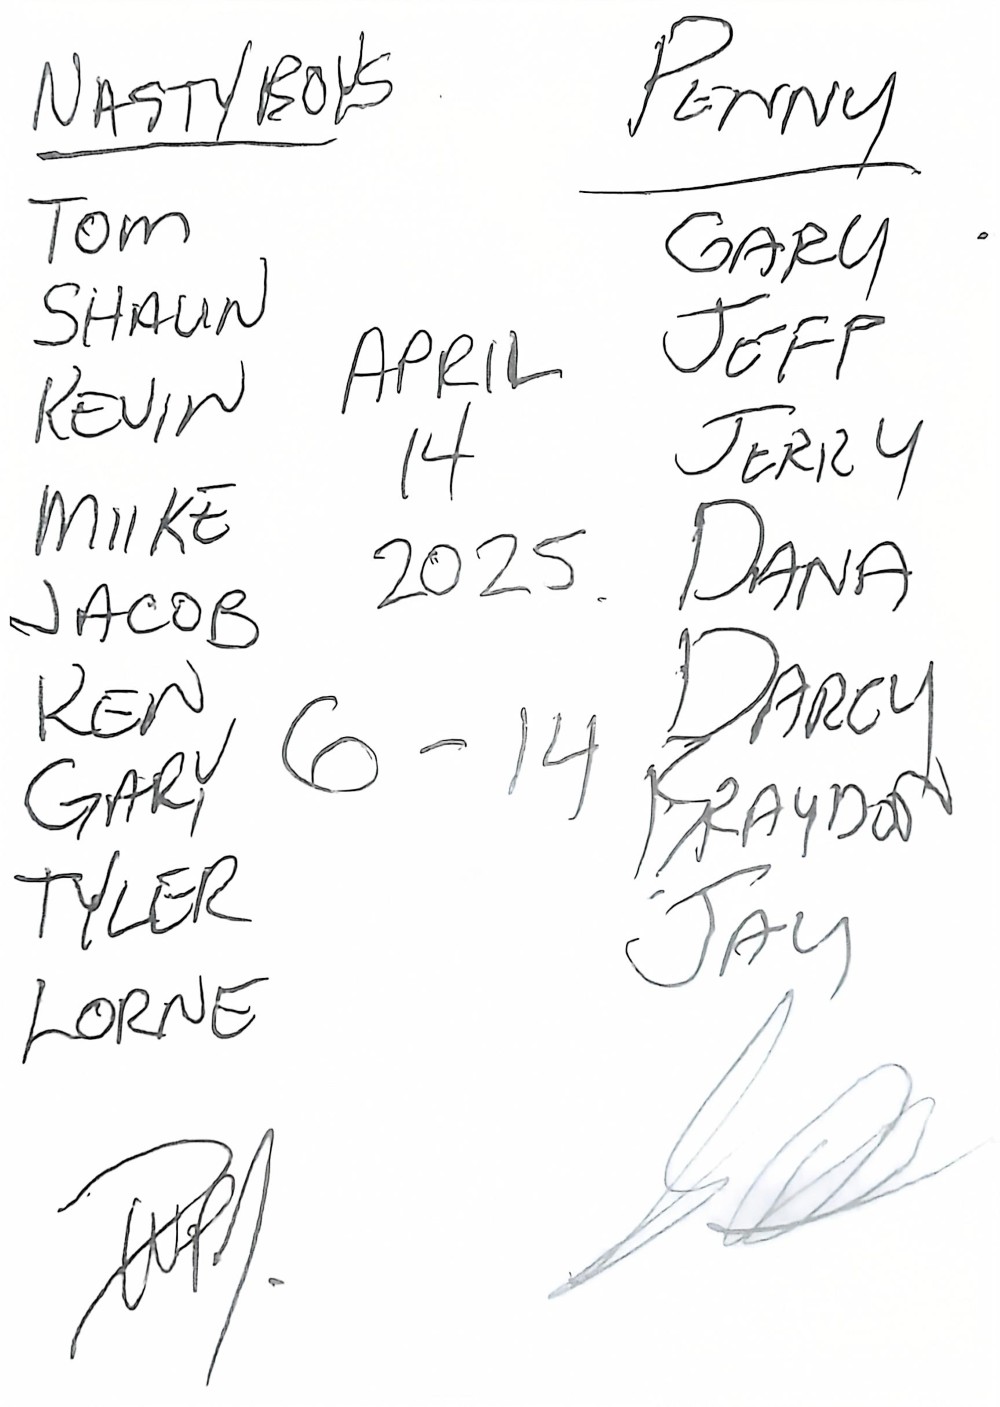 NASTY BOYS
TOM
SHAUN
KEVIN
MIIKE
JACOB
KEN
GARY
TYLER
LORNE
APRIL
14
2025.
6 - 14
PENNY
GARY
JEFF
JERRY
DANA
DARCY
BRAYDON
JAY